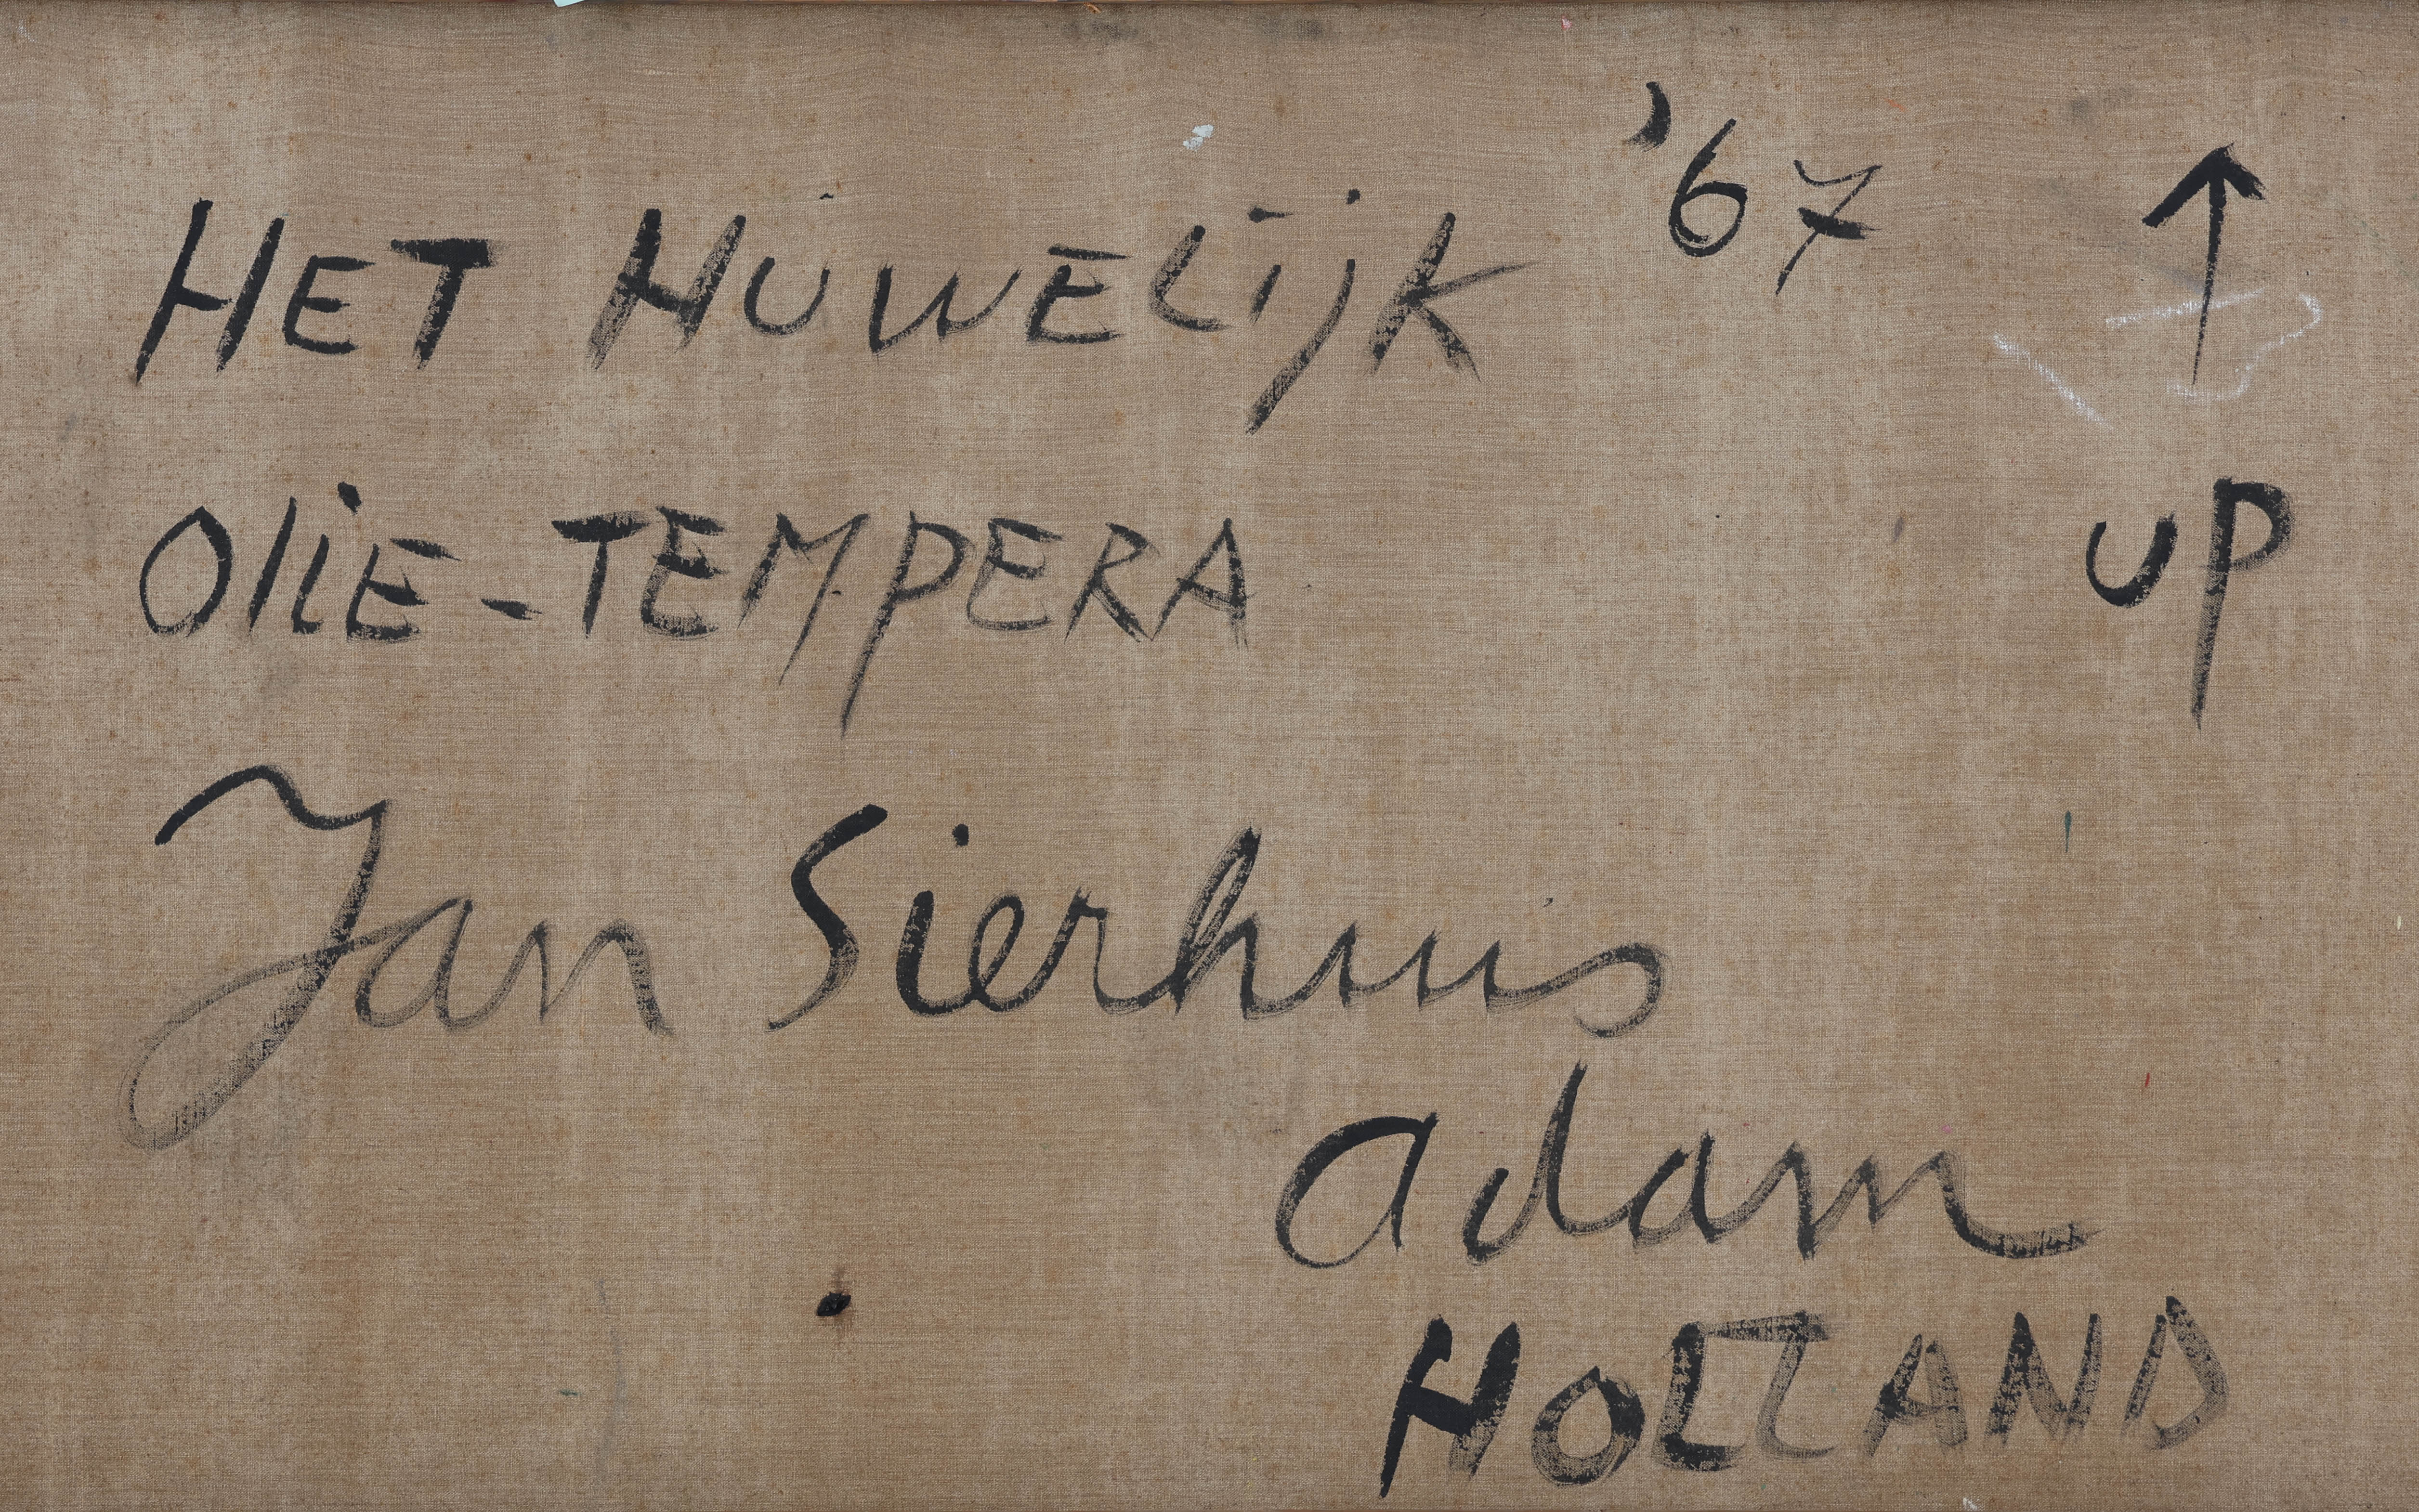 HET HUWELIJK '67
OLIE-TEMPERA UP
Jan Sierhuis
Adam
HOLLAND